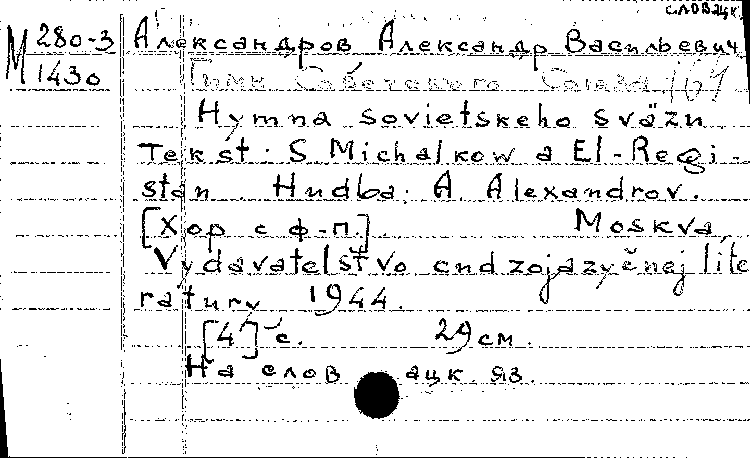 словацк.
М 280-3
1430
Александров Александр Васильевич
Гимн Советского Союза 164
Hymna sovietskeho sväzu
Tekst: S Michalkow a El-Regi-
stan. Hudba: A. Alexandrov.
[Хор с ф-п.]. Moskva,
Vydavatelštvo cudzojazyčnej lite
ratury 1944.
[4] с. 29 см.
На словацк. яз.